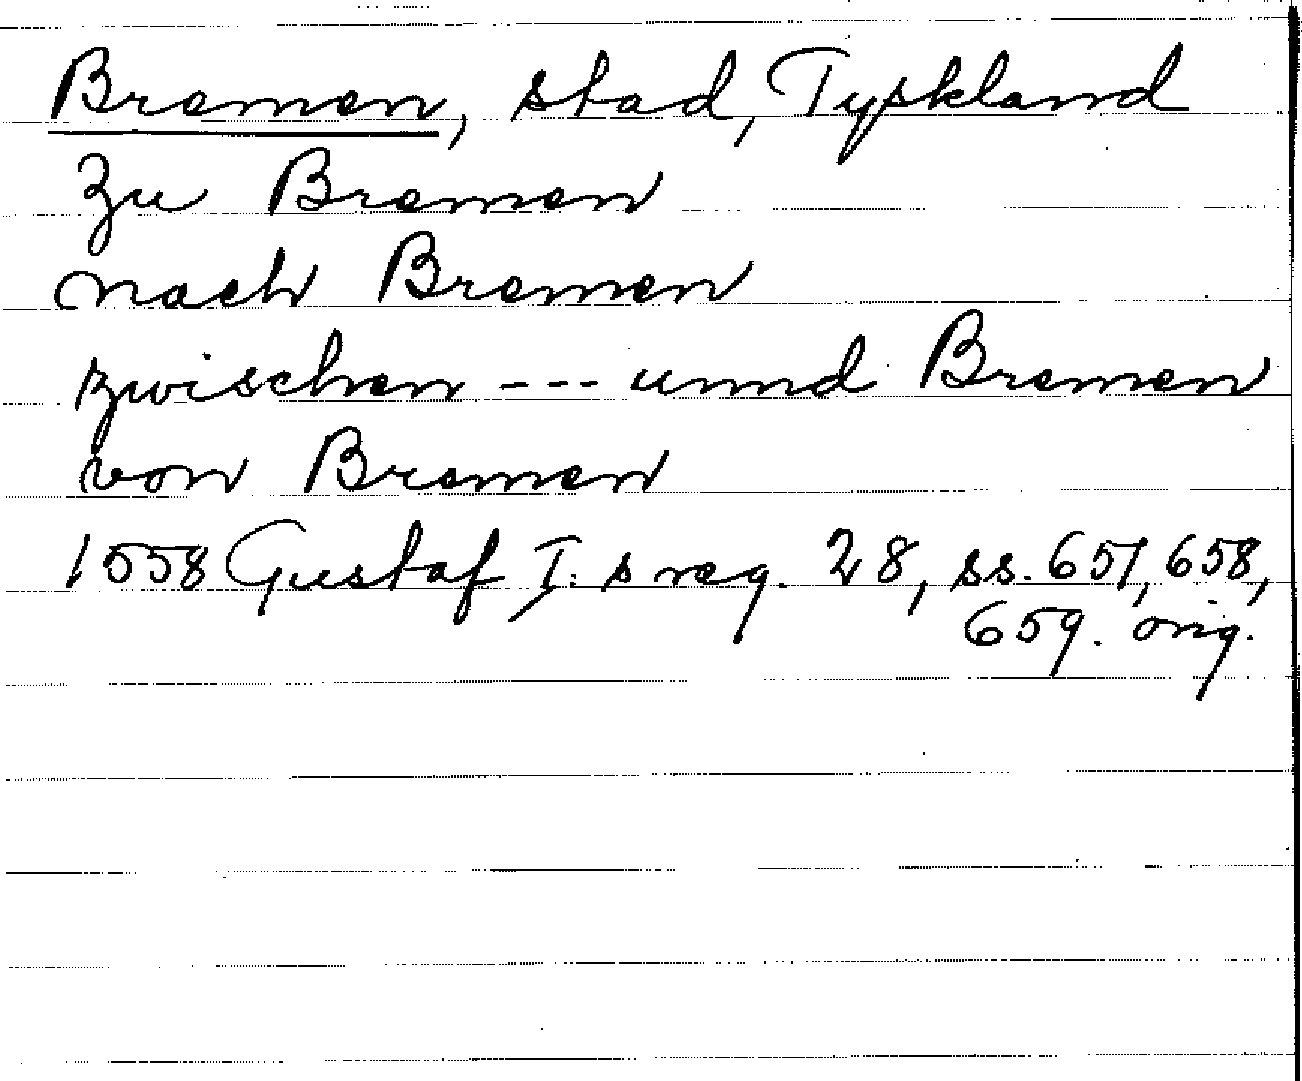 Bremen, stad, Tyskland
Zu Bremen
nach Bremen
zwischen --- unnd Bremen
von Bremen
1558 Gustaf I:s reg. 28, ss. 657, 658,
659. orig.